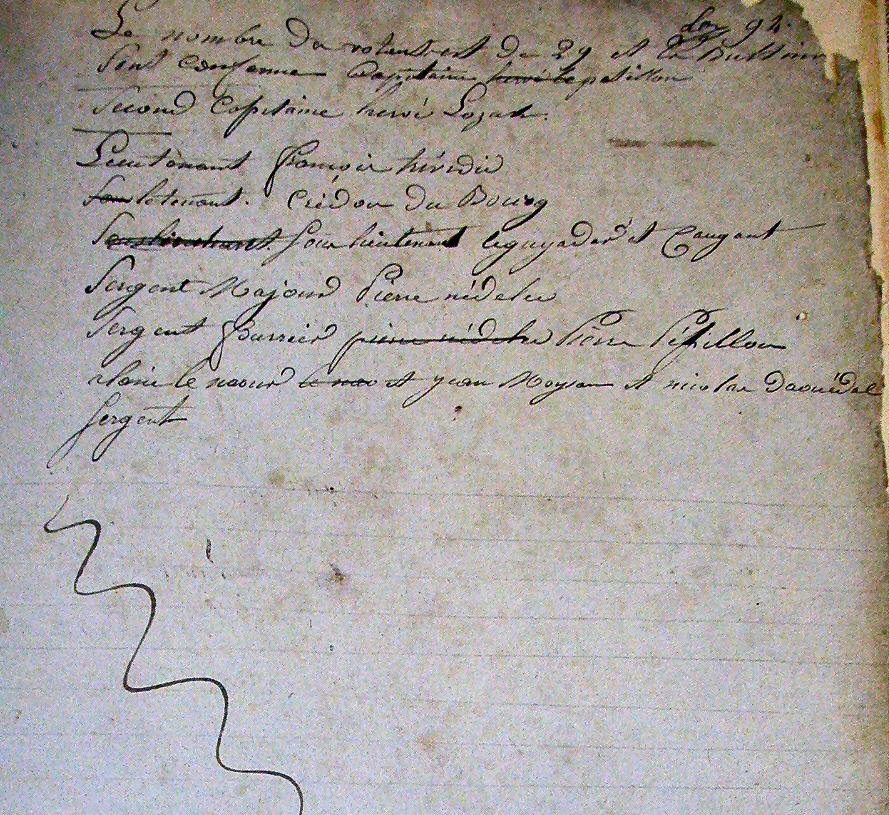 92.
Le nombre du votant est de 29 et le
Sont comme Capitaine hervé le petillon
Second Capitaine hervé Lozach.
Lieutenant françois
Sou letenant. Crédou du Bourg
Souslieutenant Sou lieutenant leguyader et Caugant
Sergent Majour Pierre nédelec
Sergent fourrier pierre nédelec Pierre Pétillon
alain le naour le nao et yvan Moysan et nicolas
Sergent